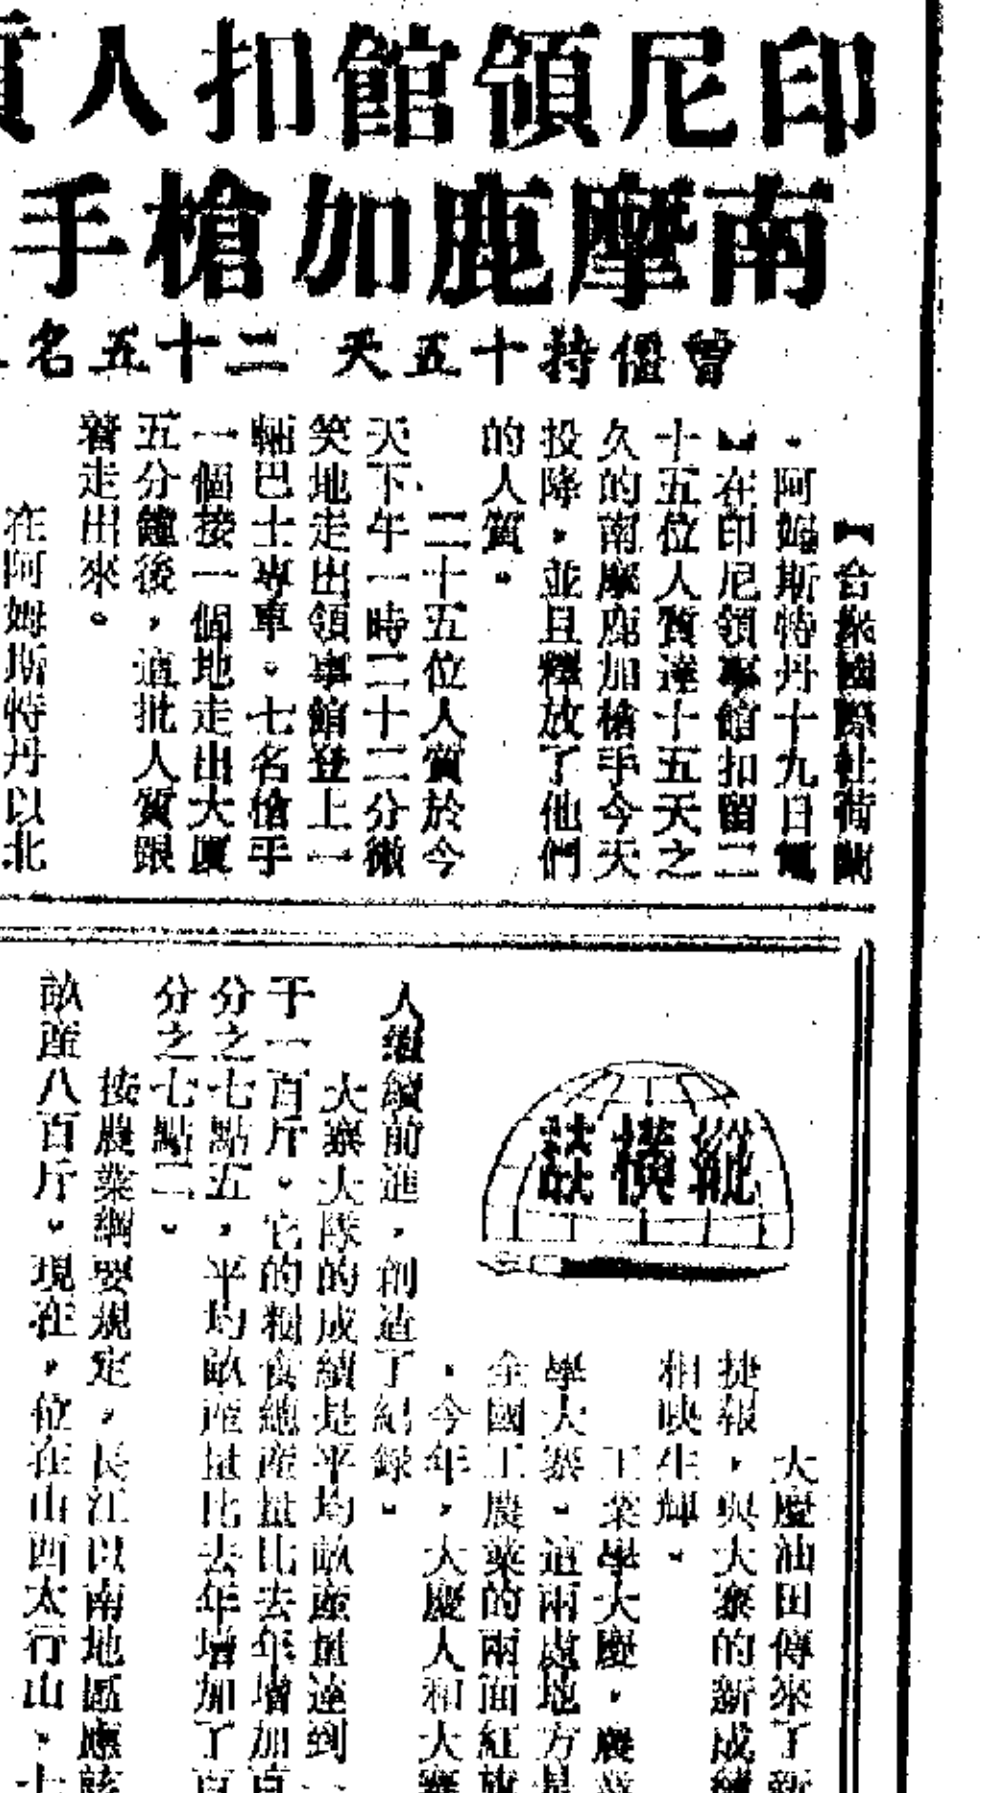 印尼領館扣人質
南摩鹿加槍手
曾僵持十五天 二十五名
【合衆國際社荷蘭
・阿姆斯特丹十九日電
】在印尼領事館扣留二
十五位人質達十五天之
久的南摩鹿加槍手今天
投降，並且釋放了他們
的人質。
二十五位人質於今
天下午一時二十二分微
笑地走出領事館登上一
輛巴士專車。七名槍手
一個接一個地走出大廈
五分鐘後，這批人質跟
着走出來。
在阿姆斯特丹以北
縱橫談
大慶油田傳來了新
捷報，與大寨的新成績
相映生輝。
工業學大慶，農業
學大寨。這兩處地方是
全國工農業的兩面紅旗
，今年，大慶人和大寨
人繼續前進，創造了紀録。
大寨大隊的成績是平均畝産量達到一
千一百斤。它的糧食總産量比去年增加百
分之七點五，平均畝産量比去年增加了百
分之七點二。
按農業綱要規定，長江以南地區應該
畝産八百斤。現在，位在山西太行山，